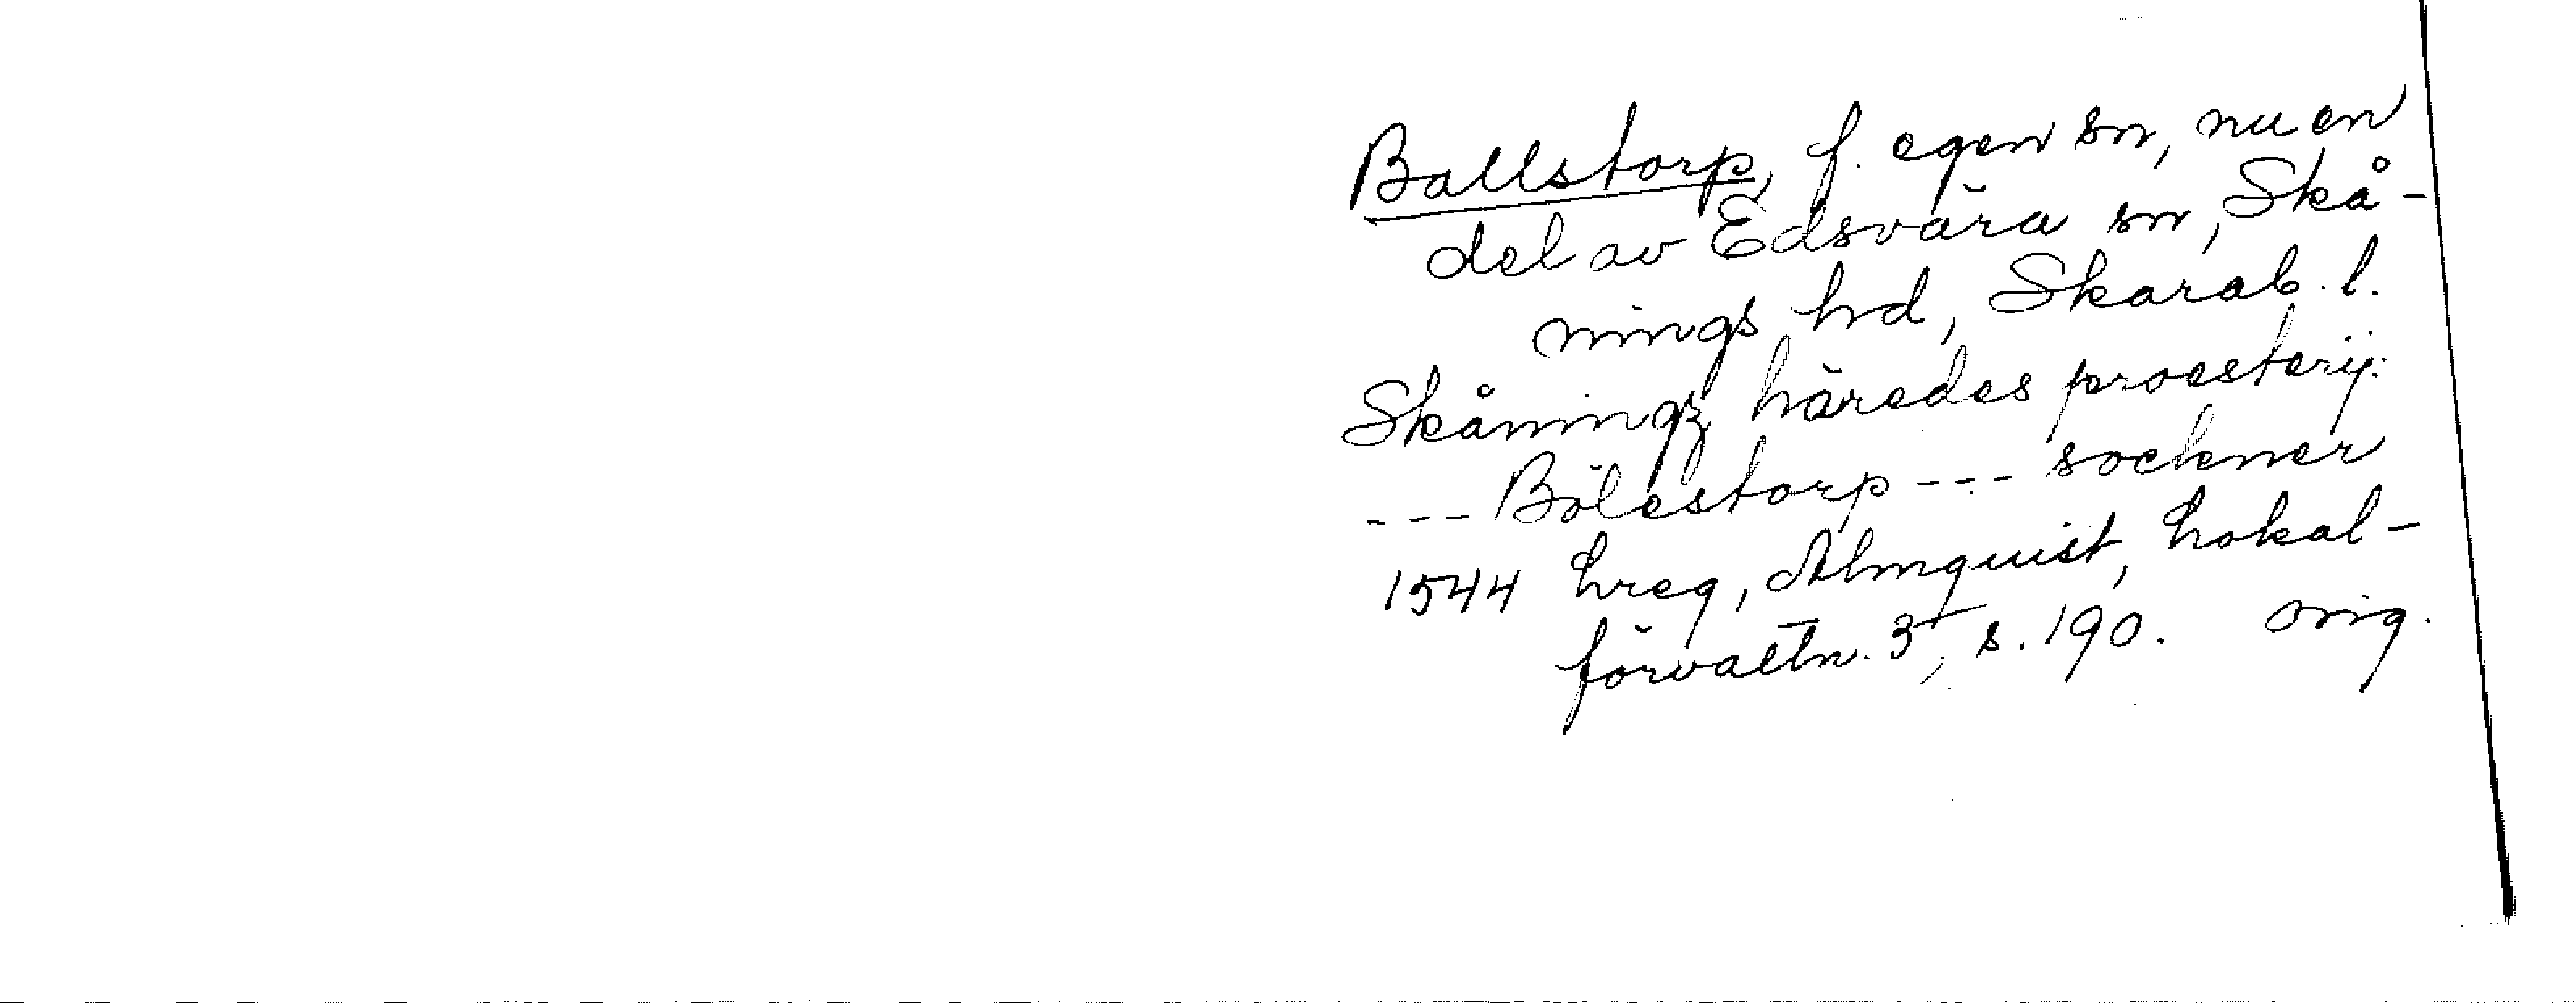 Ballstorp, f. egen sn, nu en
del av Edsvära sn, Skå-
nings hd, Skarab. l.
Skåningz häredes proesterij:
--- Bölestorp --- sockner
1544 hreg, Almquist, Lokal-
förvaltn. 3, s. 190. orig.